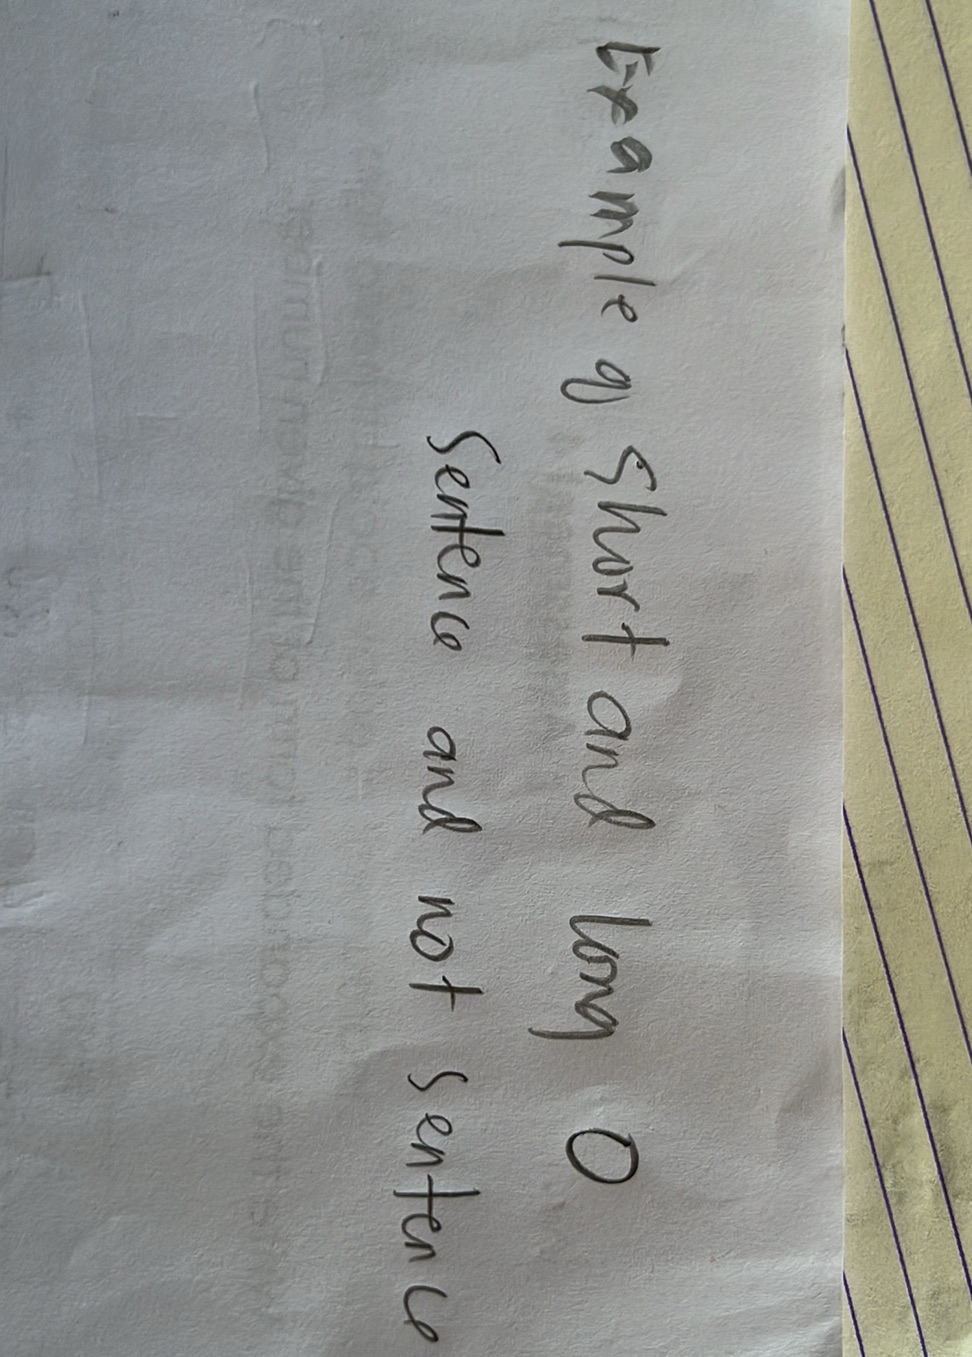 Example of Short and long O
Sentence and not sentence